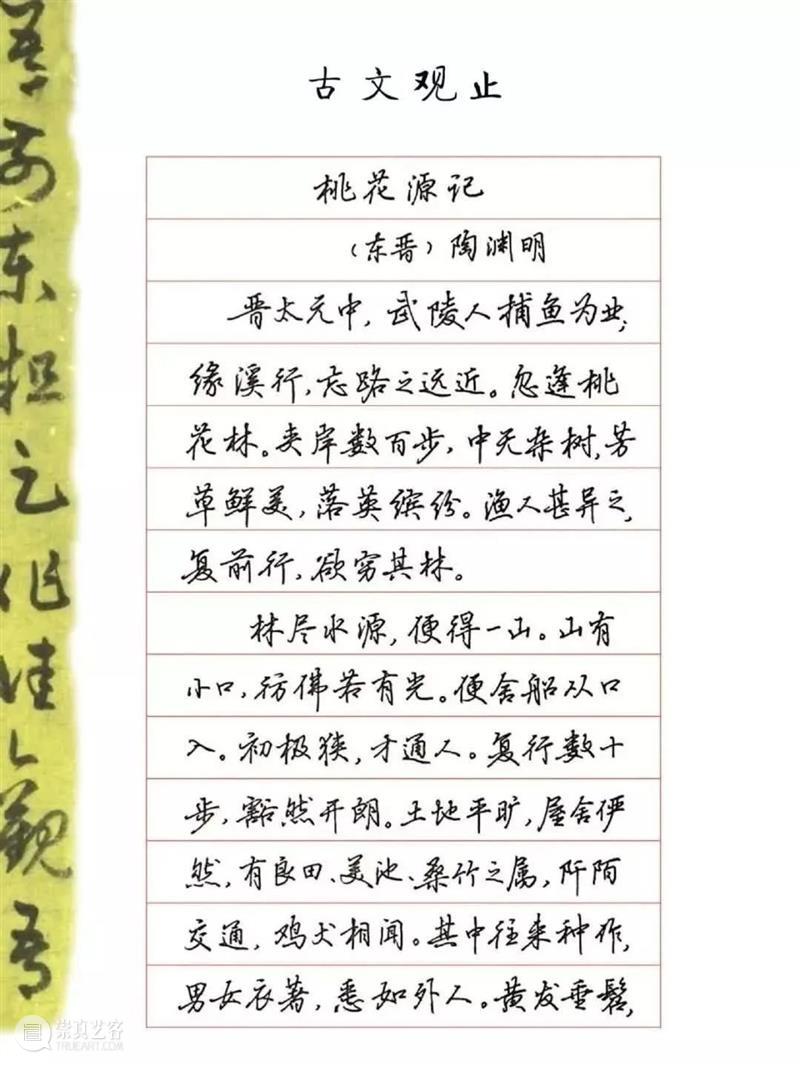 古文观止
桃花源记
（东晋）陶渊明
晋太元中，武陵人捕鱼为业；
缘溪行，忘路之远近。忽逢桃
花林。夹岸数百步，中无杂树，芳
草鲜美，落英缤纷。渔人甚异之，
复前行，欲穷其林。
林尽水源，便得一山。山有
小口，彷佛若有光。便舍船从口
入。初极狭，才通人。复行数十
步，豁然开朗。土地平旷，屋舍俨
然，有良田、美池、桑竹之属，阡陌
交通，鸡犬相闻。其中往来种作，
男女衣著，悉如外人。黄发垂髫，
崇真艺客
TRUEART.COM